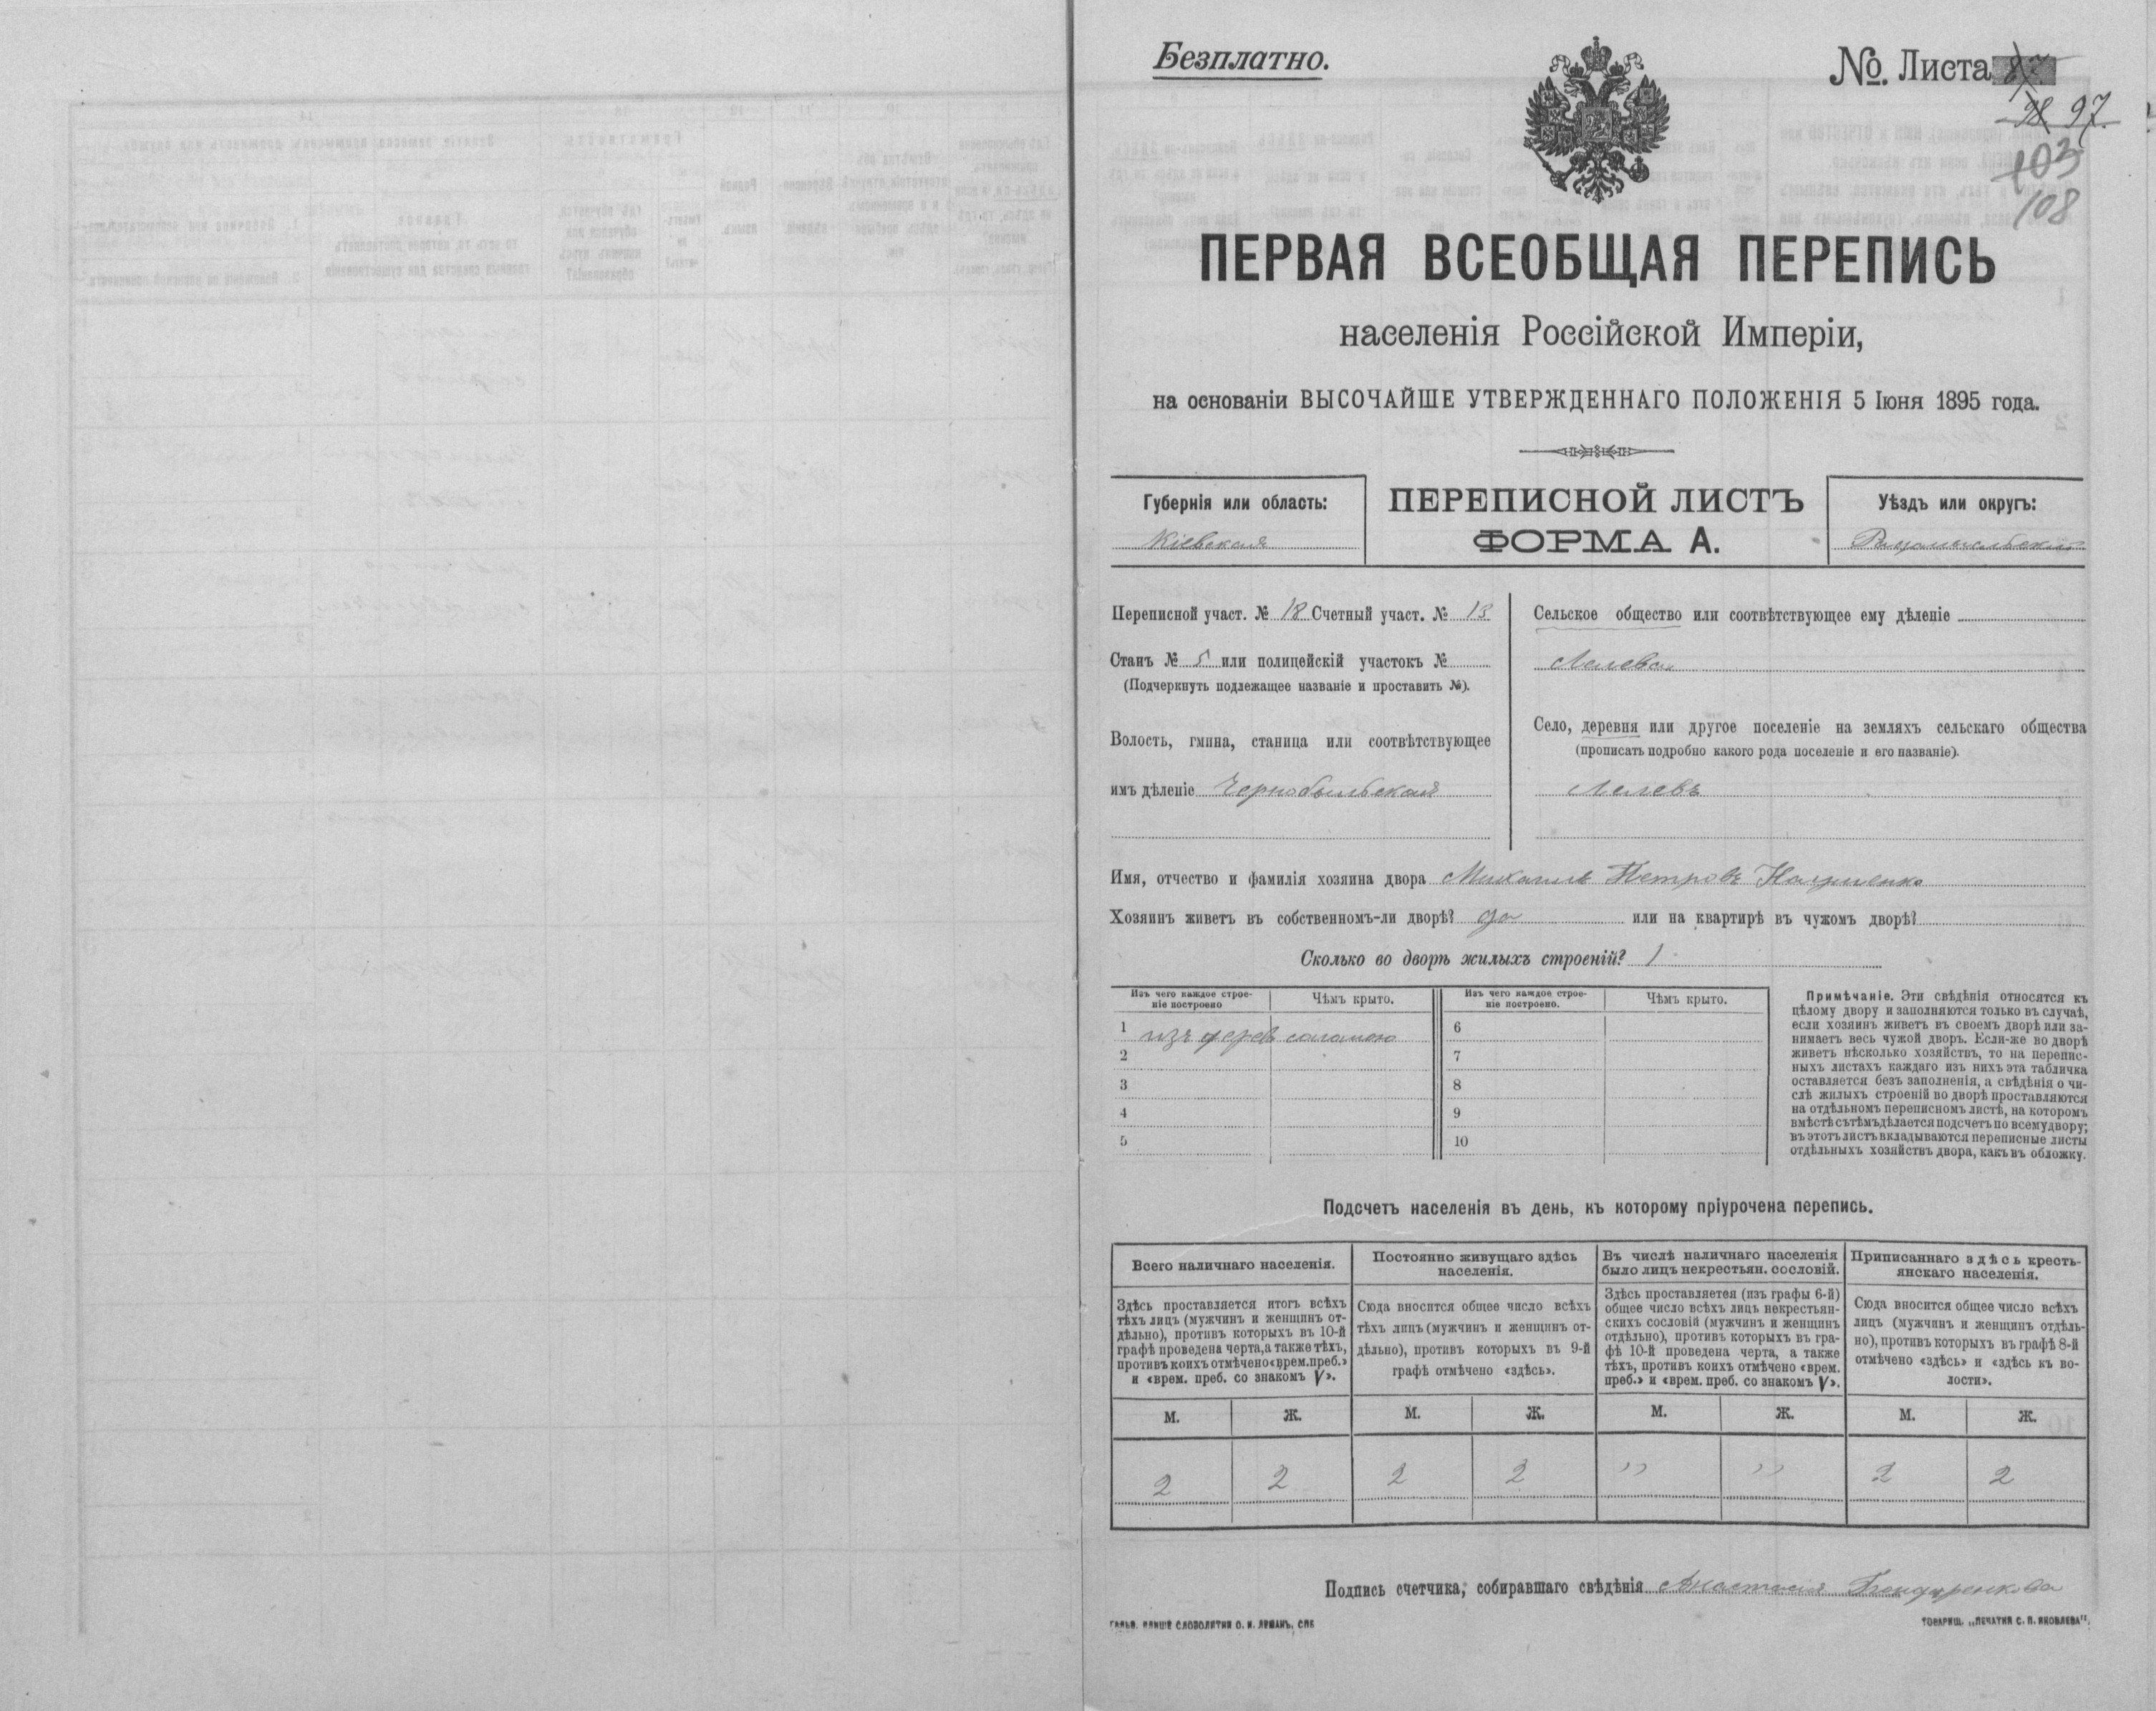 Безплатно.
№. Листа 87
98 97.
103
108
ПЕРВАЯ ВСЕОБЩАЯ ПЕРЕПИСЬ
населенія Россійской Имперіи,
на основаніи ВЫСОЧАЙШЕ УТВЕРЖДЕННАГО ПОЛОЖЕНІЯ 5 Іюня 1895 года.
Губернія или область:
Кіевская
ПЕРЕПИСНОЙ ЛИСТЪ
ФОРМА А.
Уѣздъ или округъ:
Радомысльскій
Переписной участ. № 18 Счетный участ. № 13
Станъ № 5 или полицейскій участокъ №
(Подчеркнуть подлежащее названіе и проставить №).
Волость, гмина, станица или соотвѣтствующее
имъ дѣленіе Чернобыльская
Сельское общество или соотвѣтствующее ему дѣленіе
Лелевск
Село, деревня или другое поселеніе на земляхъ сельскаго общества
(прописать подробно какого рода поселеніе и его названіе).
Лелевъ
Имя, отчество и фамилія хозяина двора Михаилъ Петровъ Науменко
Хозяинъ живетъ въ собственномъ-ли дворѣ? да или на квартирѣ въ чужомъ дворѣ?
Сколько во дворѣ жилыхъ строеній? 1
Изъ чего каждое строе-
ніе построено
Чѣмъ крыто.
Изъ чего каждое строе-
ніе построено.
Чѣмъ крыто.
1 изъ дерев соломою
2
3
4
5
6
7
8
9
10
Примѣчаніе. Эти свѣдѣнія относятся къ
цѣлому двору и заполняются только въ случаѣ,
если хозяинъ живетъ въ своемъ дворѣ или за-
нимаетъ весь чужой дворъ. Если-же во дворѣ
живетъ нѣсколько хозяйствъ, то на перепис-
ныхъ листахъ каждаго изъ нихъ эта табличка
оставляется безъ заполненія, а свѣдѣнія о чи-
слѣ жилыхъ строеній во дворѣ проставляются
на отдѣльномъ переписномъ листѣ, на которомъ
вмѣстѣ съ тѣмъ дѣлается подсчетъ по всему двору;
въ этотъ листъ вкладываются переписные листы
отдѣльныхъ хозяйствъ двора, какъ въ обложку.
Подсчетъ населенія въ день, къ которому пріурочена перепись.
Всего наличнаго населенія.
Здѣсь проставляется итогъ всѣхъ
тѣхъ лицъ (мужчинъ и женщинъ от-
дѣльно), противъ которыхъ въ 10-й
графѣ проведена черта, а также тѣхъ,
противъ коихъ отмѣчено «врем. преб.»
и «врем. преб. со знакомъ V».
Постоянно живущаго здѣсь
населенія.
Сюда вносится общее число всѣхъ
тѣхъ лицъ (мужчинъ и женщинъ от-
дѣльно), противъ которыхъ въ 9-й
графѣ отмѣчено «здѣсь».
Въ числѣ наличнаго населенія
было лицъ некрестьян. сословій.
Здѣсь проставляется (изъ графы 6-й)
общее число всѣхъ лицъ некрестьян-
скихъ сословій (мужчинъ и женщинъ
отдѣльно), противъ которыхъ въ гра-
фѣ 10-й проведена черта, а также
тѣхъ, противъ коихъ отмѣчено «врем.
преб.» и «врем. преб. со знакомъ V».
Приписаннаго здѣсь кресть-
янскаго населенія.
Сюда вносится общее число всѣхъ
лицъ (мужчинъ и женщинъ отдѣль-
но), противъ которыхъ въ графѣ 8-й
отмѣчено «здѣсь» и «здѣсь къ во-
лости».
М. Ж. М. Ж. М. Ж. М. Ж.
2 2 2 2 " " 2 2
Подпись счетчика, собиравшаго свѣдѣнія Анастасия Бондаренкова
ГАЛЬВ. КЛИШЕ СЛОВОЛИТНИ О. И. ЛЕМАНЪ, СПБ
ТОВАРИЩ. „ПЕЧАТНЯ С. П. ЯКОВЛЕВА".